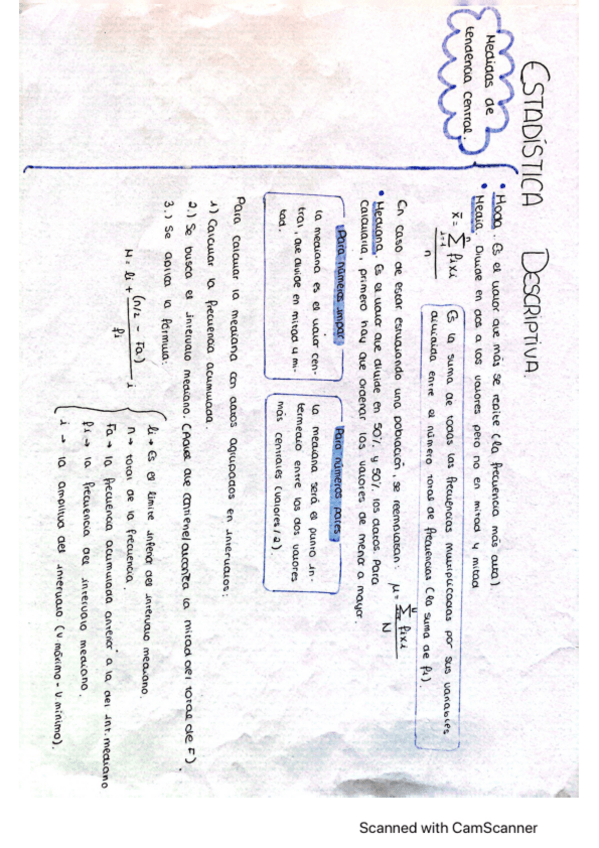 ESTADÍSTICA DESCRIPTIVA.
Medidas de
tendencia central.
• Moda. Es el valor que más se repite (la frecuencia más alta).
• Media. Divide en dos a los valores pero no en mitad y mitad
x̄ = Σ fixi / n
i=1
Es la suma de todas las frecuencias multiplicadas por sus variables
dividida entre el número total de frecuencias (la suma de fi).
En caso de estar estudiando una población, se reemplazan: μ = Σ fixi / N
• Mediana. Es el valor que divide en 50% y 50% los datos. Para
calcularla, primero hay que ordenar los valores de menor a mayor.
Para números impar
la mediana es el valor cen-
tral, que divide en mitad y mi-
tad.
Para números pares
la mediana será el punto in-
termedio entre los dos valores
más centrales (valores/2).
Para calcular la mediana con datos agrupados en intervalos:
1) Calcular la frecuencia acumulada.
2.) Se busca el intervalo mediano. (Aquel que contiene/ la mitad del total de F)
3.) Se aplica la fórmula:
M = li + (n/2 - Fa) / fi · i
li → Es el límite inferior del intervalo mediano.
n → total de la frecuencia.
Fa → la frecuencia acumulada anterior a la del int. mediano
fi → la frecuencia del intervalo mediano.
i → la amplitud del intervalo (v. máximo - v. mínimo).
Scanned with CamScanner